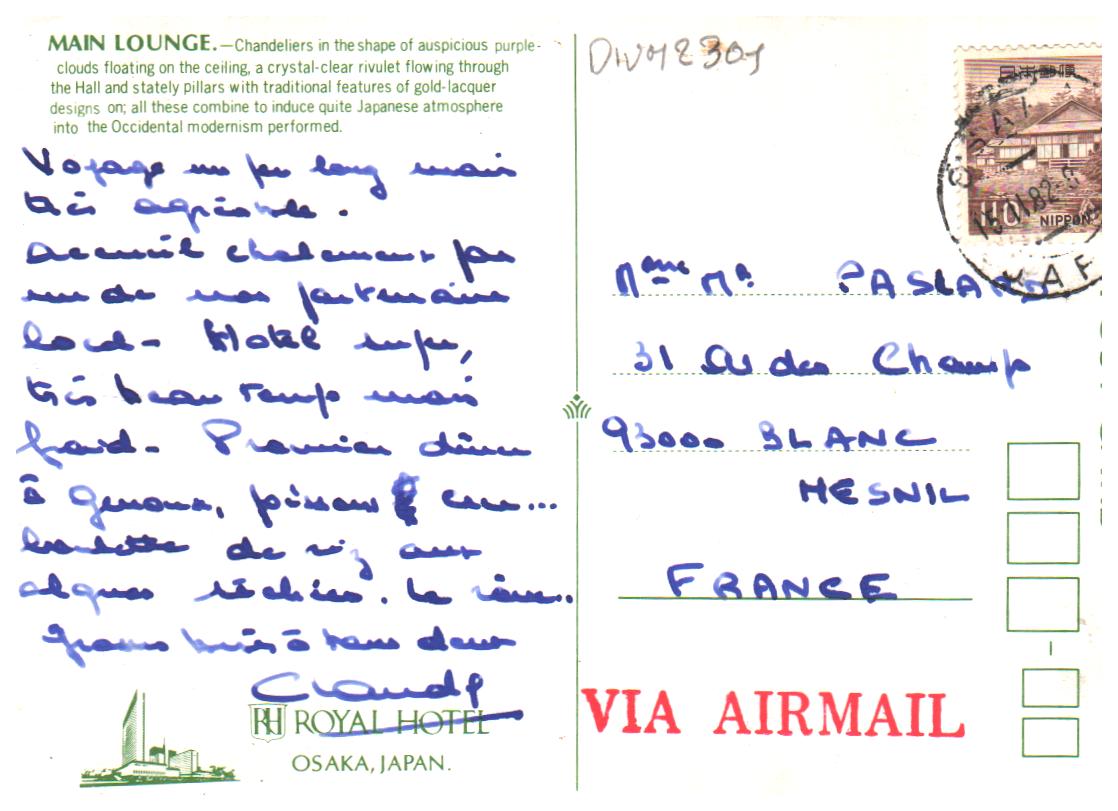 MAIN LOUNGE.—Chandeliers in the shape of auspicious purple-
clouds floating on the ceiling, a crystal-clear rivulet flowing through
the Hall and stately pillars with traditional features of gold-lacquer
designs on; all these combine to induce quite Japanese atmosphere
into the Occidental modernism performed.
Voyage un peu long mais
très agréable.
Accueil chaleureux par
un de nos partenaires
local - Hotel super,
très beau temps mais
froid - Premier dîner
à genoux, poisson cru...
boulette de riz aux
algues séchées. Le rêve..
Grosses bises à tous deux
Claude
RH ROYAL HOTEL
OSAKA, JAPAN.
日本郵便
15.11.82
NIPPON
Mme Mr PASLARD
31 Av des Champs
93000 BLANC
MESNIL
FRANCE
VIA AIRMAIL